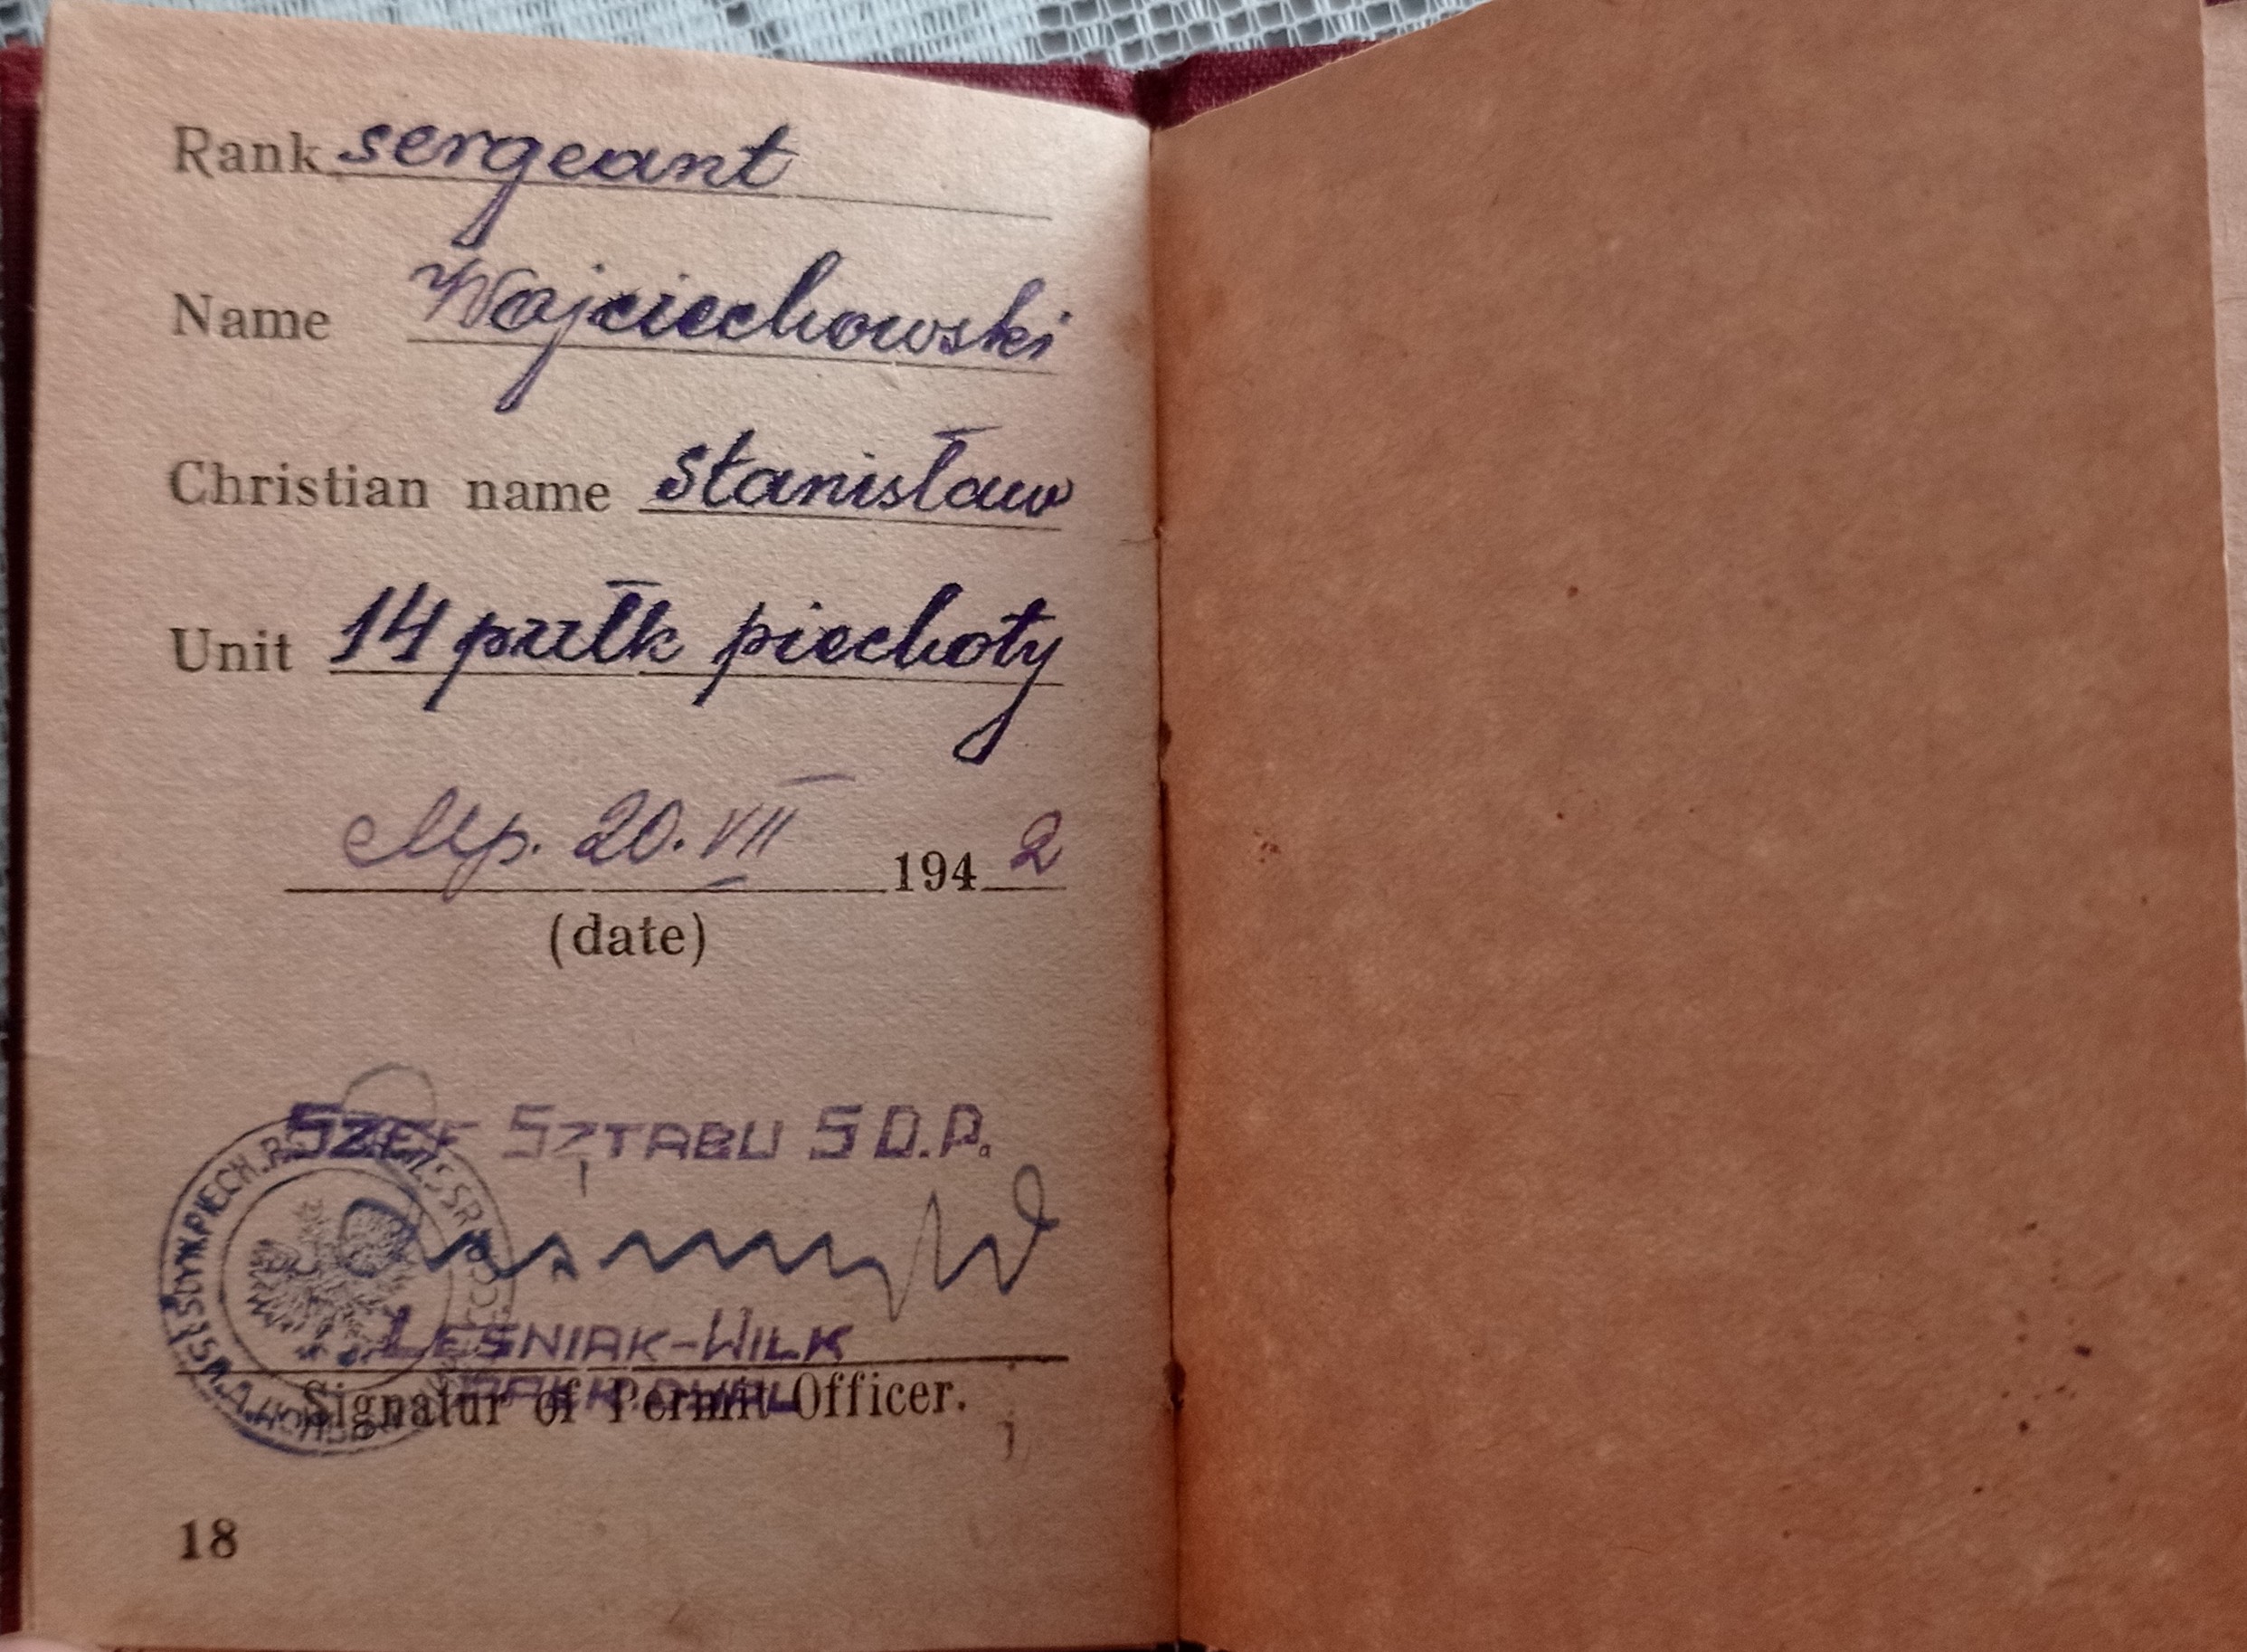 Rank sergeant
Name Wojciechowski
Christian name Stanisław
Unit 14 pułk piechoty
Mp. 20. VII 1942
(date)
SZEF SZTABU 5 D.P.
LEŚNIAK-WILK
Signatur of Permit Officer.
18